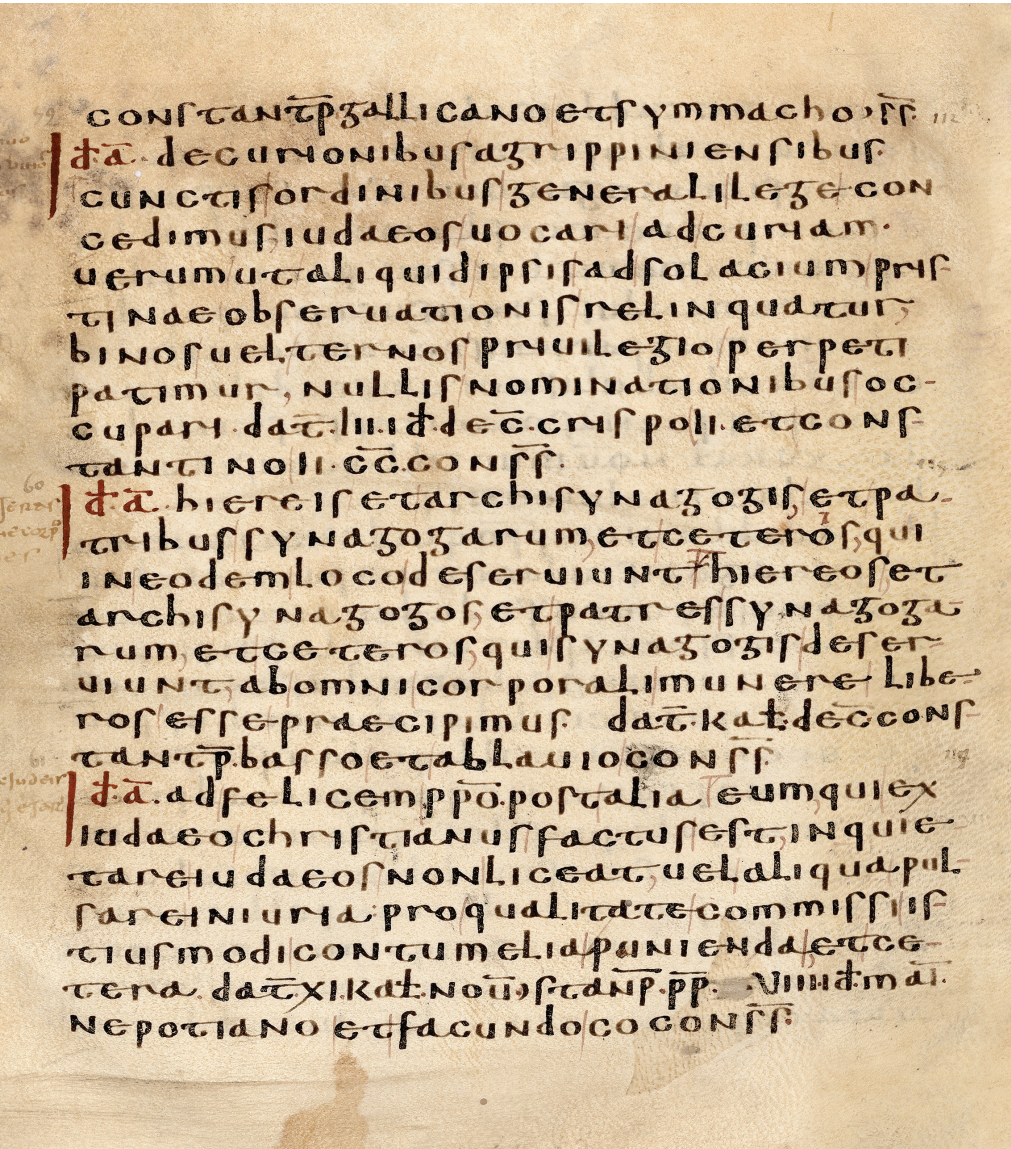 constantp̄ gallicano et symmacho s̄s̄
id̄ ā decurionibus agrippiniensibus
cunctis ordinibus generali lege con
cedimus iudaeos uocari ad curiam.
uerum ut aliquid ipsis ad solacium pris
tinae obseruationis relinquatur,
binos uel ternos priuilegio perpeti
patimur, nullis nominationibus oc-
cupari. dat̄. iiii. id̄. dec̄. crispo ii. et cons
tantino ii. c̄c̄. cons̄s̄.
id̄. ā. hiereis et archisynagogis, et pa
tribus synagogarum, et ceteros, qui
in eodem loco deseruiunt hiereos et
archisynagogos, et patres synagoga
rum, et ceteros, qui synagogis deser-
uiunt, ab omni corporali munere libe-
ros esse praecipimus. dat̄. kal̄. dec̄ cons
tantp̄. basso et ablauio cons̄s̄.
id̄. ā. ad felicem pp̄ō. post alia eum qui ex
iudaeo christianus factus est, inquie
tare iudaeos non liceat, uel aliqua pul
sare iniuria pro qualitate commissi is
tiusmodi contumelia punienda, et ce-
tera. dat̄ xi. kal̄. nou̅, stanp̄. p̄p̄. uiiii id̄. mai̅.
nepotiano et facundo co cons̄s̄.